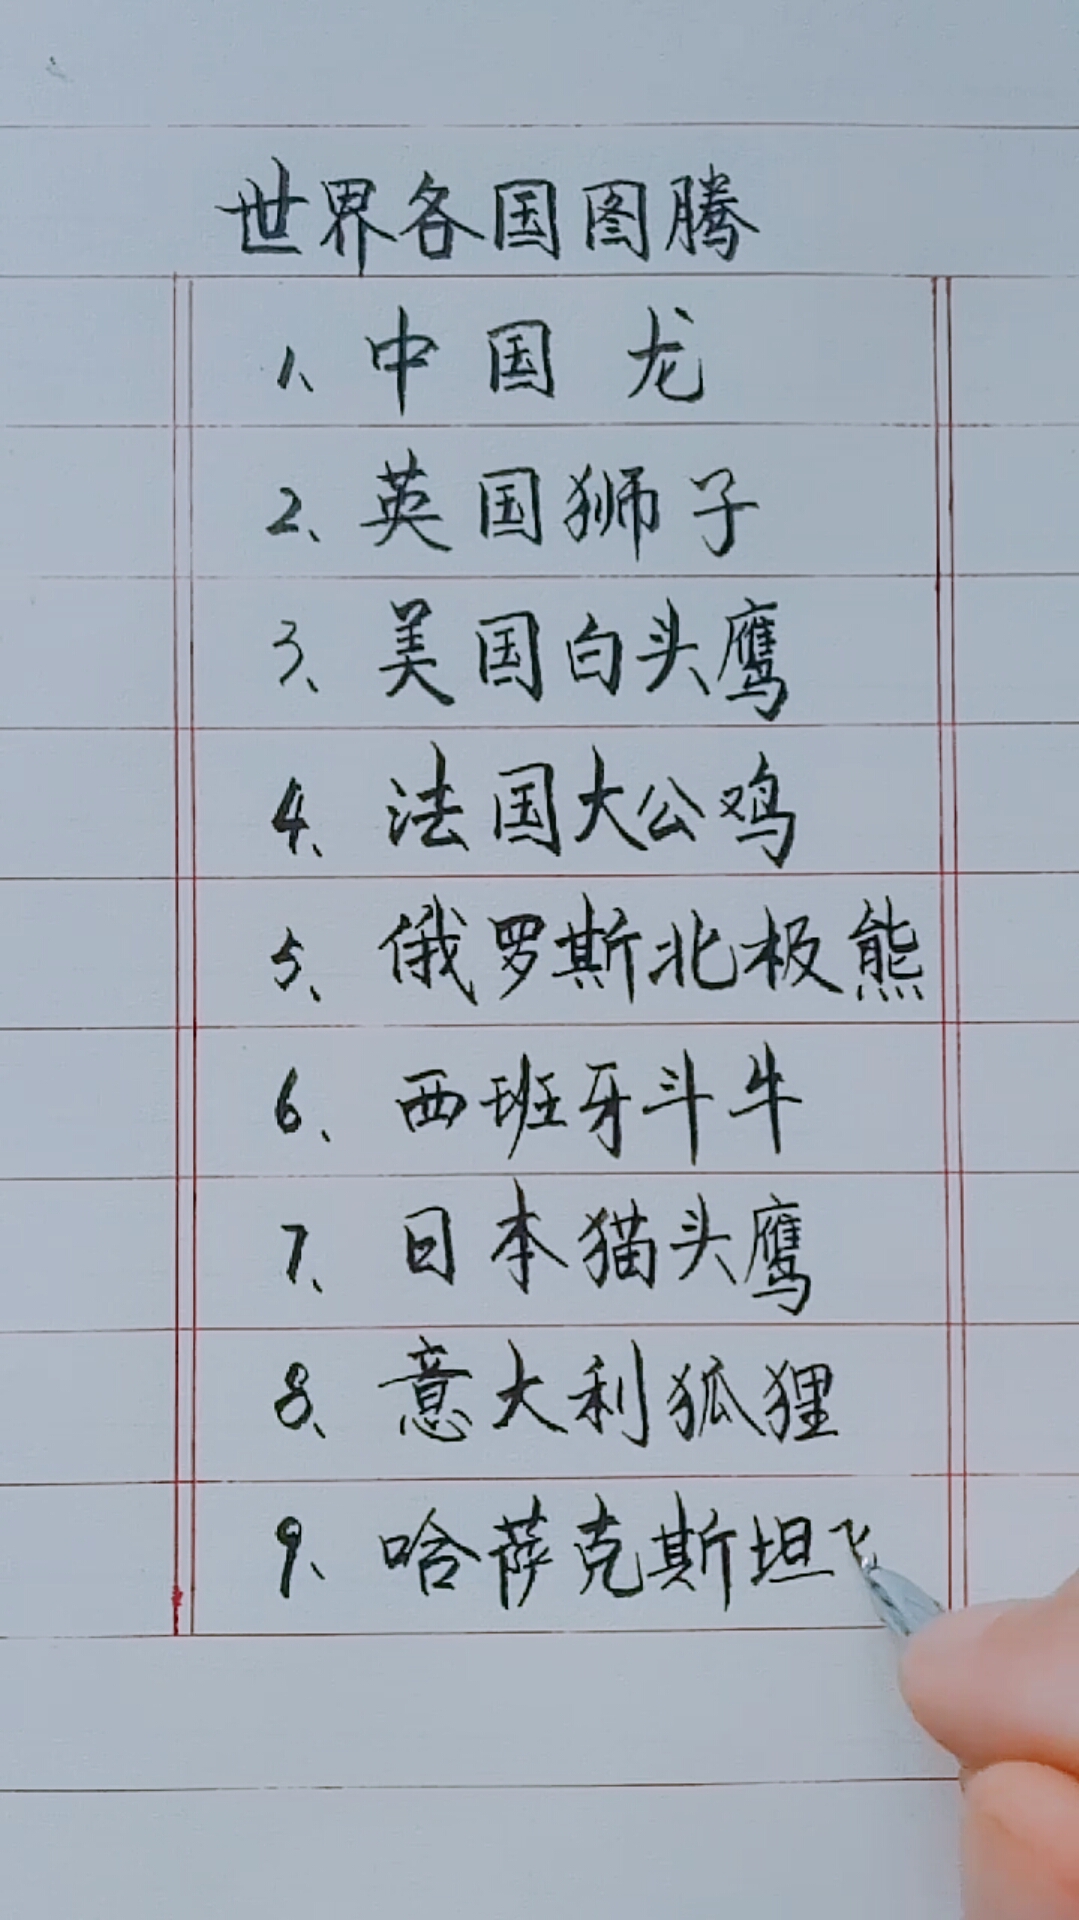 世界各国图腾
1、中国龙
2、英国狮子
3、美国白头鹰
4、法国大公鸡
5、俄罗斯北极熊
6、西班牙斗牛
7、日本猫头鹰
8、意大利狐狸
9、哈萨克斯坦飞